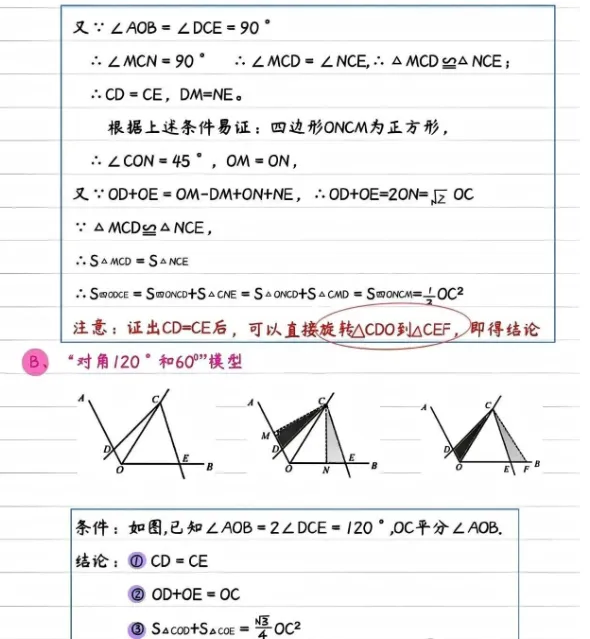 又∵∠AOB=∠DCE=90°
∴∠MCN=90° ∴∠MCD=∠NCE,∴△MCD≌△NCE；
∴CD=CE，DM=NE。
根据上述条件易证：四边形ONCM为正方形，
∴∠CON=45°，OM=ON，
又∵OD+OE=OM-DM+ON+NE，∴OD+OE=2ON=√2 OC
∵△MCD≌△NCE，
∴S△MCD=S△NCE
∴S四ODCE=S四ONCD+S△CNE=S△ONCD+S△CMD=S四ONCM=1/2OC²
注意：证出CD=CE后，可以直接旋转△CDO到△CEF，即得结论
B、“对角120°和60°”模型
A C D O E B
A C M D O N E B
A C D O E F B
条件：如图,已知∠AOB=2∠DCE=120°,OC平分∠AOB.
结论：① CD=CE
② OD+OE=OC
③ S△COD+S△COE=√3/4 OC²